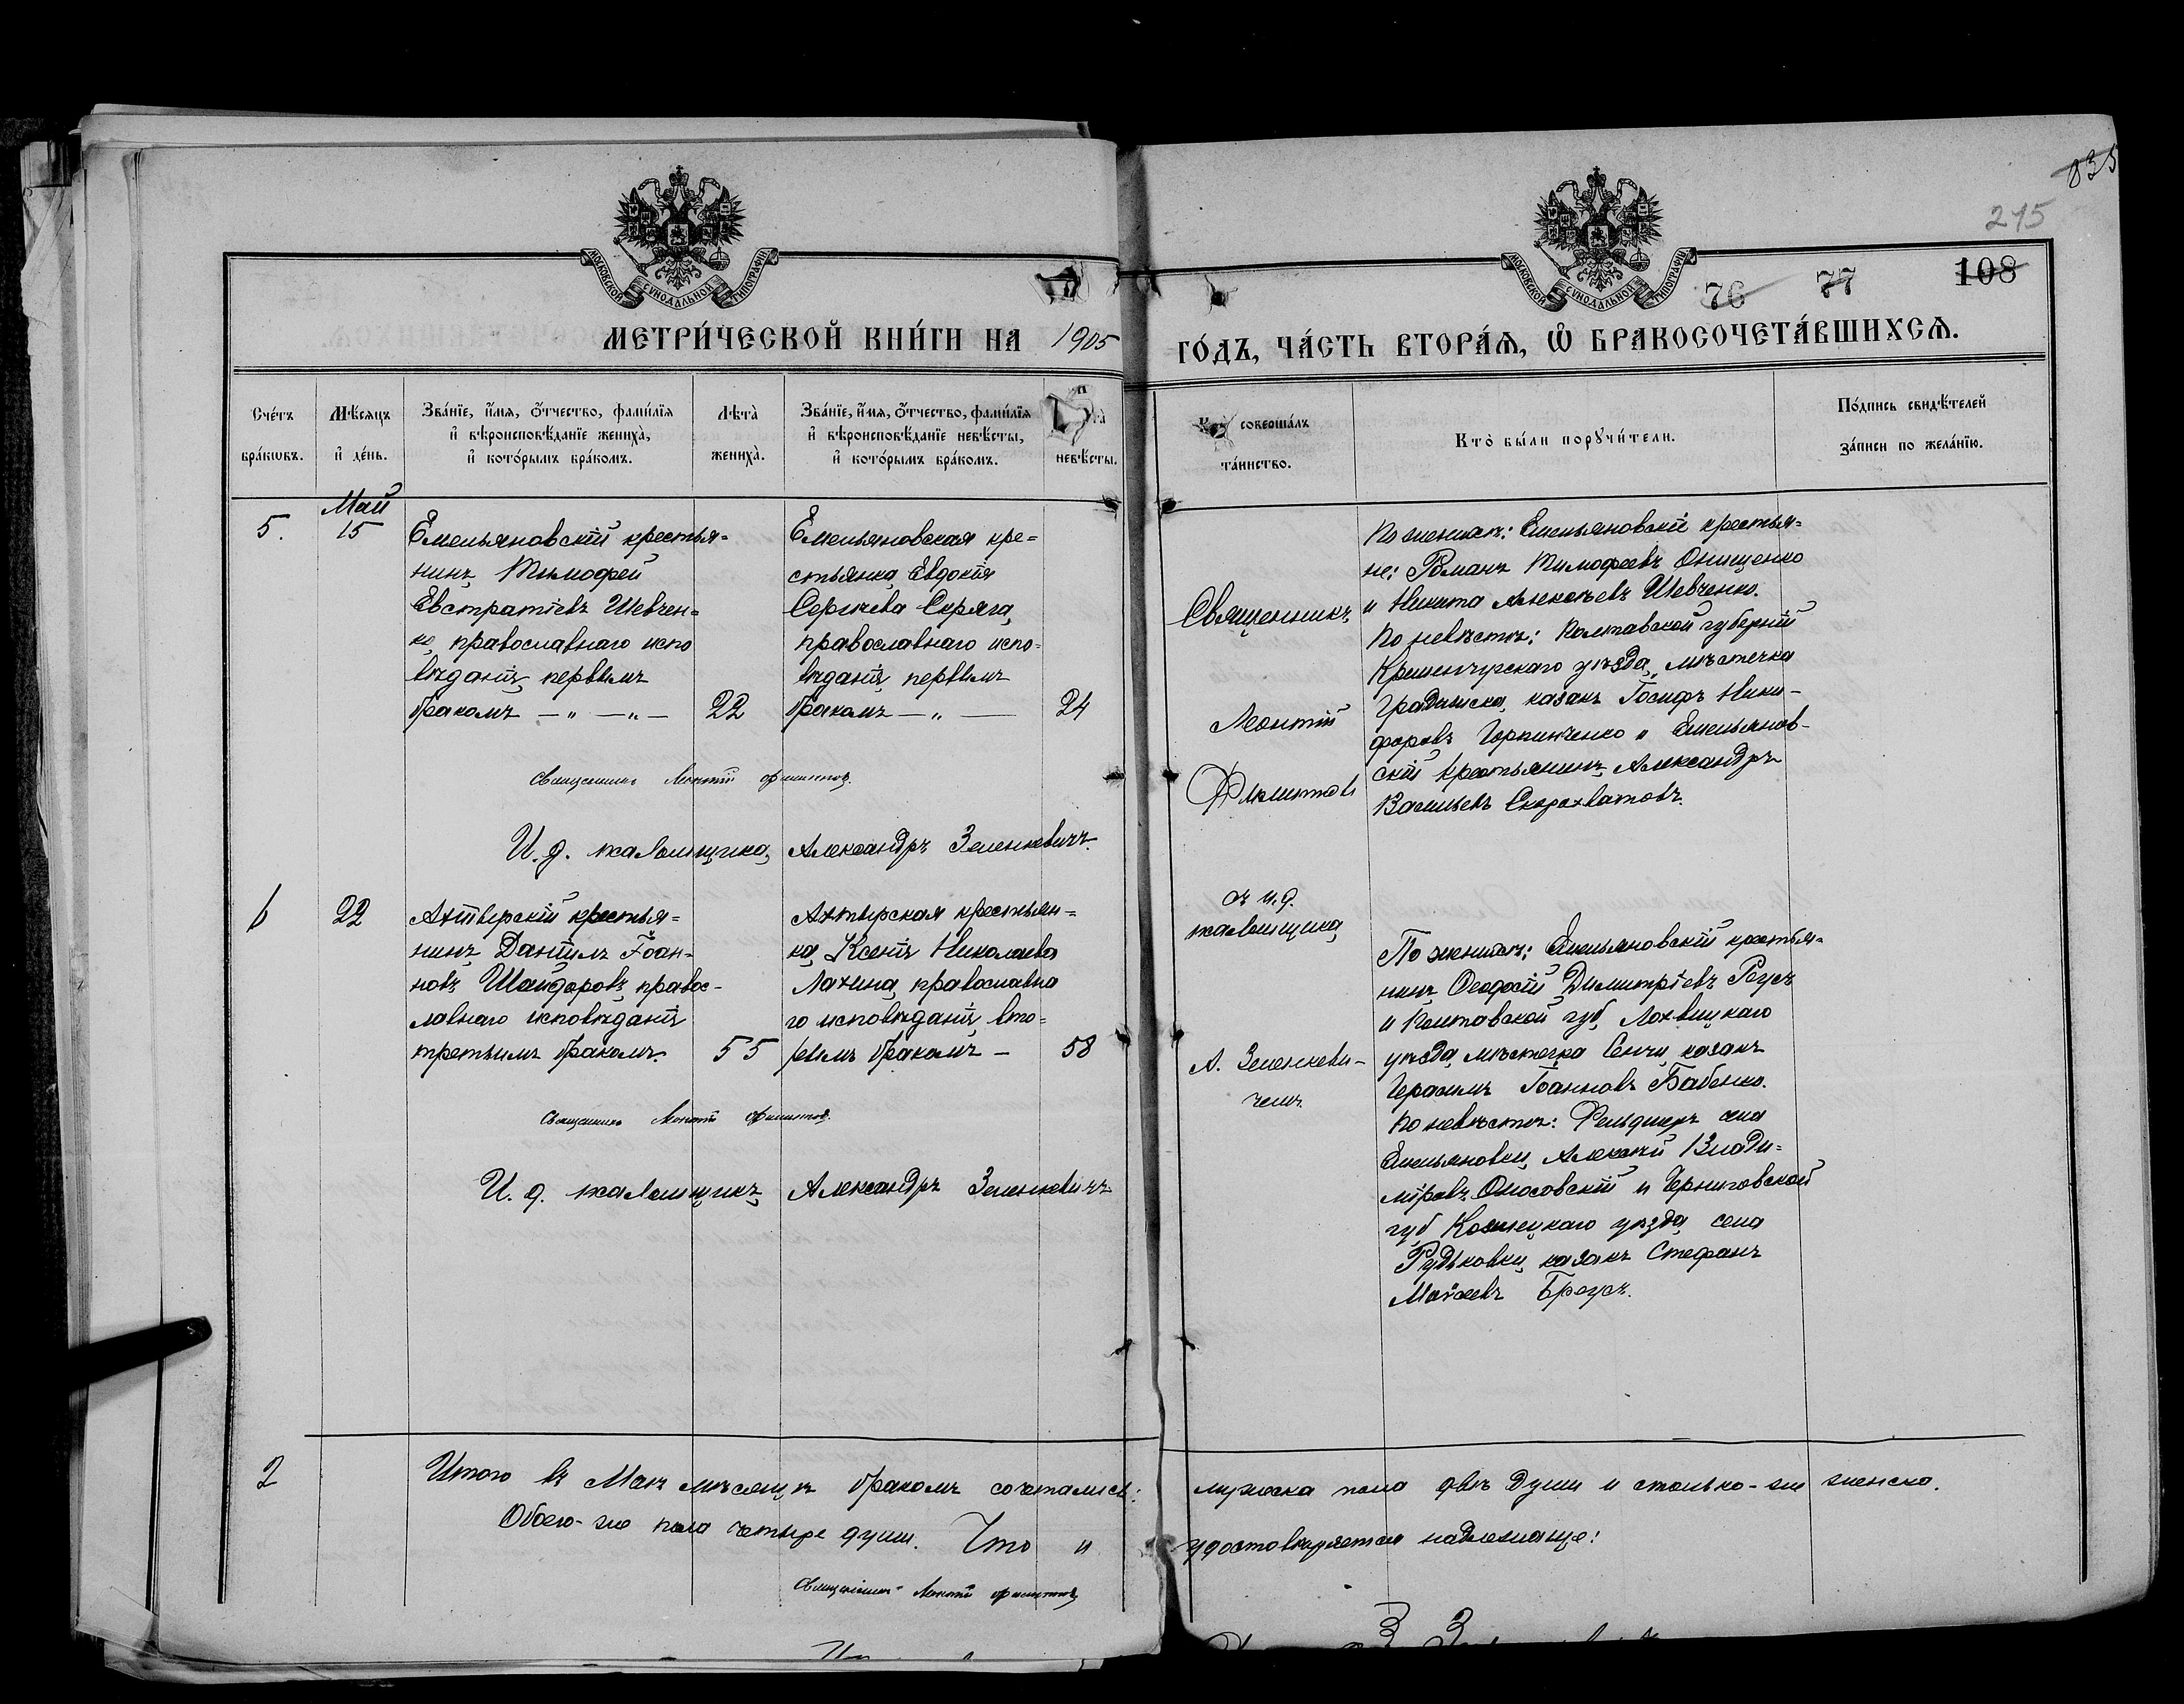 835
275
76 77 108
МОСКОВСКОЙ СѴНОДАЛЬНОЙ ТИПОГРАФІИ
МОСКОВСКОЙ СѴНОДАЛЬНОЙ ТИПОГРАФІИ
МЕТРИ́ЧЕСКОЙ КНИ́ГИ НА 1905
ГО́ДЪ, ЧА́СТЬ ВТОРА́Я, Ѽ БРАКОСОЧЕТА́ВШИХСѦ.
Сче́тъ
бра́кѡвъ.
Мѣ́сяцъ
и҆ де́нь.
Зва́нїе, и҆́мя, ѻ҆́тчество, фами́лїя
и҆ вѣроисповѣ́данїе жениха̀,
и҆ кото́рымъ бра́комъ.
Лѣта̀
жениха̀.
Зва́нїе, и҆́мя, ѻ҆́тчество, фами́лїя
и҆ вѣроисповѣ́данїе невѣ́сты,
и҆ кото́рымъ бра́комъ.
невѣ́сты.
соверша́лъ
та́инство.
Кто̀ бы́ли порꙋчи́тели.
По́дпись свидѣ́телей
за́писи по жела́нїю.
Май
5. 15
Емельяновскій крестья=
нинъ Тимофей
Евстратіевъ Шевчен=
ко, православнаго испо
вѣданія, первымъ
бракомъ — „ — „ — 22
Емельяновская кре=
стьянка Евдокія
Сергіева Скряга,
православнаго испо=
вѣданія, первымъ
бракомъ — „ — 24
Священникъ Леонтій Филиппов
И. д. псаломщика, Александръ Зеленкевичъ.
Священникъ
Леонтій
съ и. д.
псаломщика
А. Зеленкеви-
чемъ
По женихѣ: Емельяновскіе крестья=
не: Романъ Тимофеевъ Онищенко
и Никита Алексѣевъ Шевченко.
По невѣстѣ: Полтавской губерніи
Кременчугскаго уѣзда, мѣстечка
Градижска, казакъ Іосифъ Ники-
форовъ Горпинченко и Емельянов-
скій крестьянинъ Александръ
Васильевъ Скороxватовъ.
6 22
Ахтырскій крестья=
нинъ Даніилъ Іоан=
новъ Шайдоровъ, правос-
лавнаго исповѣданія
третьимъ бракомъ. 55
Ахтырская крестьян=
ка, Ксенія Николаева
Лахина, православна
го исповѣданія, вто=
рымъ бракомъ — 58
Священникъ Леонтій
И. д. псаломщикъ Александръ Зеленкевичъ
По женихѣ: Емельяновскій крестья=
нинъ Ѳеодосій Димитріевъ Гусъ
и Полтавской губ. Лохвицкаго
уѣзда, мѣстечка Сенчи, казакъ
Герасимъ Іоанновъ Бабенко.
По невѣстѣ: Фельдшеръ села
Емельяновки, Алексѣй Влади=
міровъ Оносовскій и Черниговской
губ. Козелецкаго уѣзда, села
Рудьковки, казакъ Стефанъ
Моѵсеевъ Броусъ.
2 Итого въ Маѣ мѣсяцѣ бракомъ сочетались: мужеска пола двѣ души и столько-же женска.
Обоего-же пола четыре души. Что и удостовѣряется надлежаще:
Священникъ Леонтій